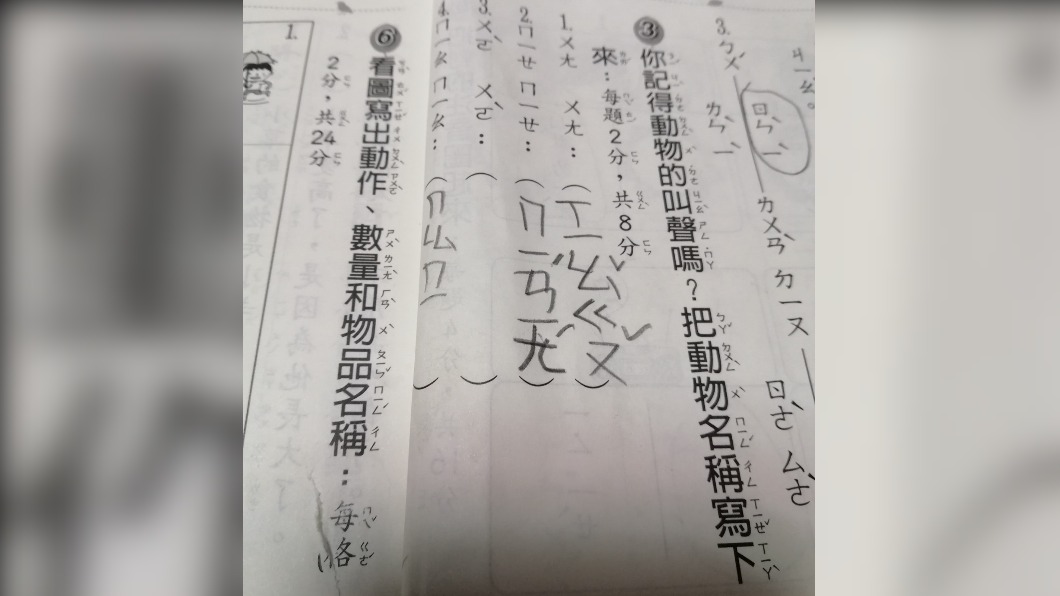 ㄐㄧㄠ。
3. ㄅㄨˋ
ㄖㄣˋ ㄌㄨㄢˋ ㄉㄧㄡ
ㄌㄣˋ
ㄖㄜˋ ㄙㄜˋ
③ 你記得動物的叫聲嗎？把動物名稱寫下
來：每題2分，共8分
1. ㄨㄤ ㄨㄤˋ：（ㄒㄧㄠˇㄍㄡˇ）
2. ㄇㄧㄝ ㄇㄧㄝ：（ㄇㄧㄢˊㄧㄤˊ）
3. ㄨㄛˋ ㄨㄛˋ：（ ）
4. ㄇㄧㄠ ㄇㄧㄠ：（ㄇㄠㄇㄧ）
⑥ 看圖寫出動作、數量和物品名稱：每各
2分，共24分
1.